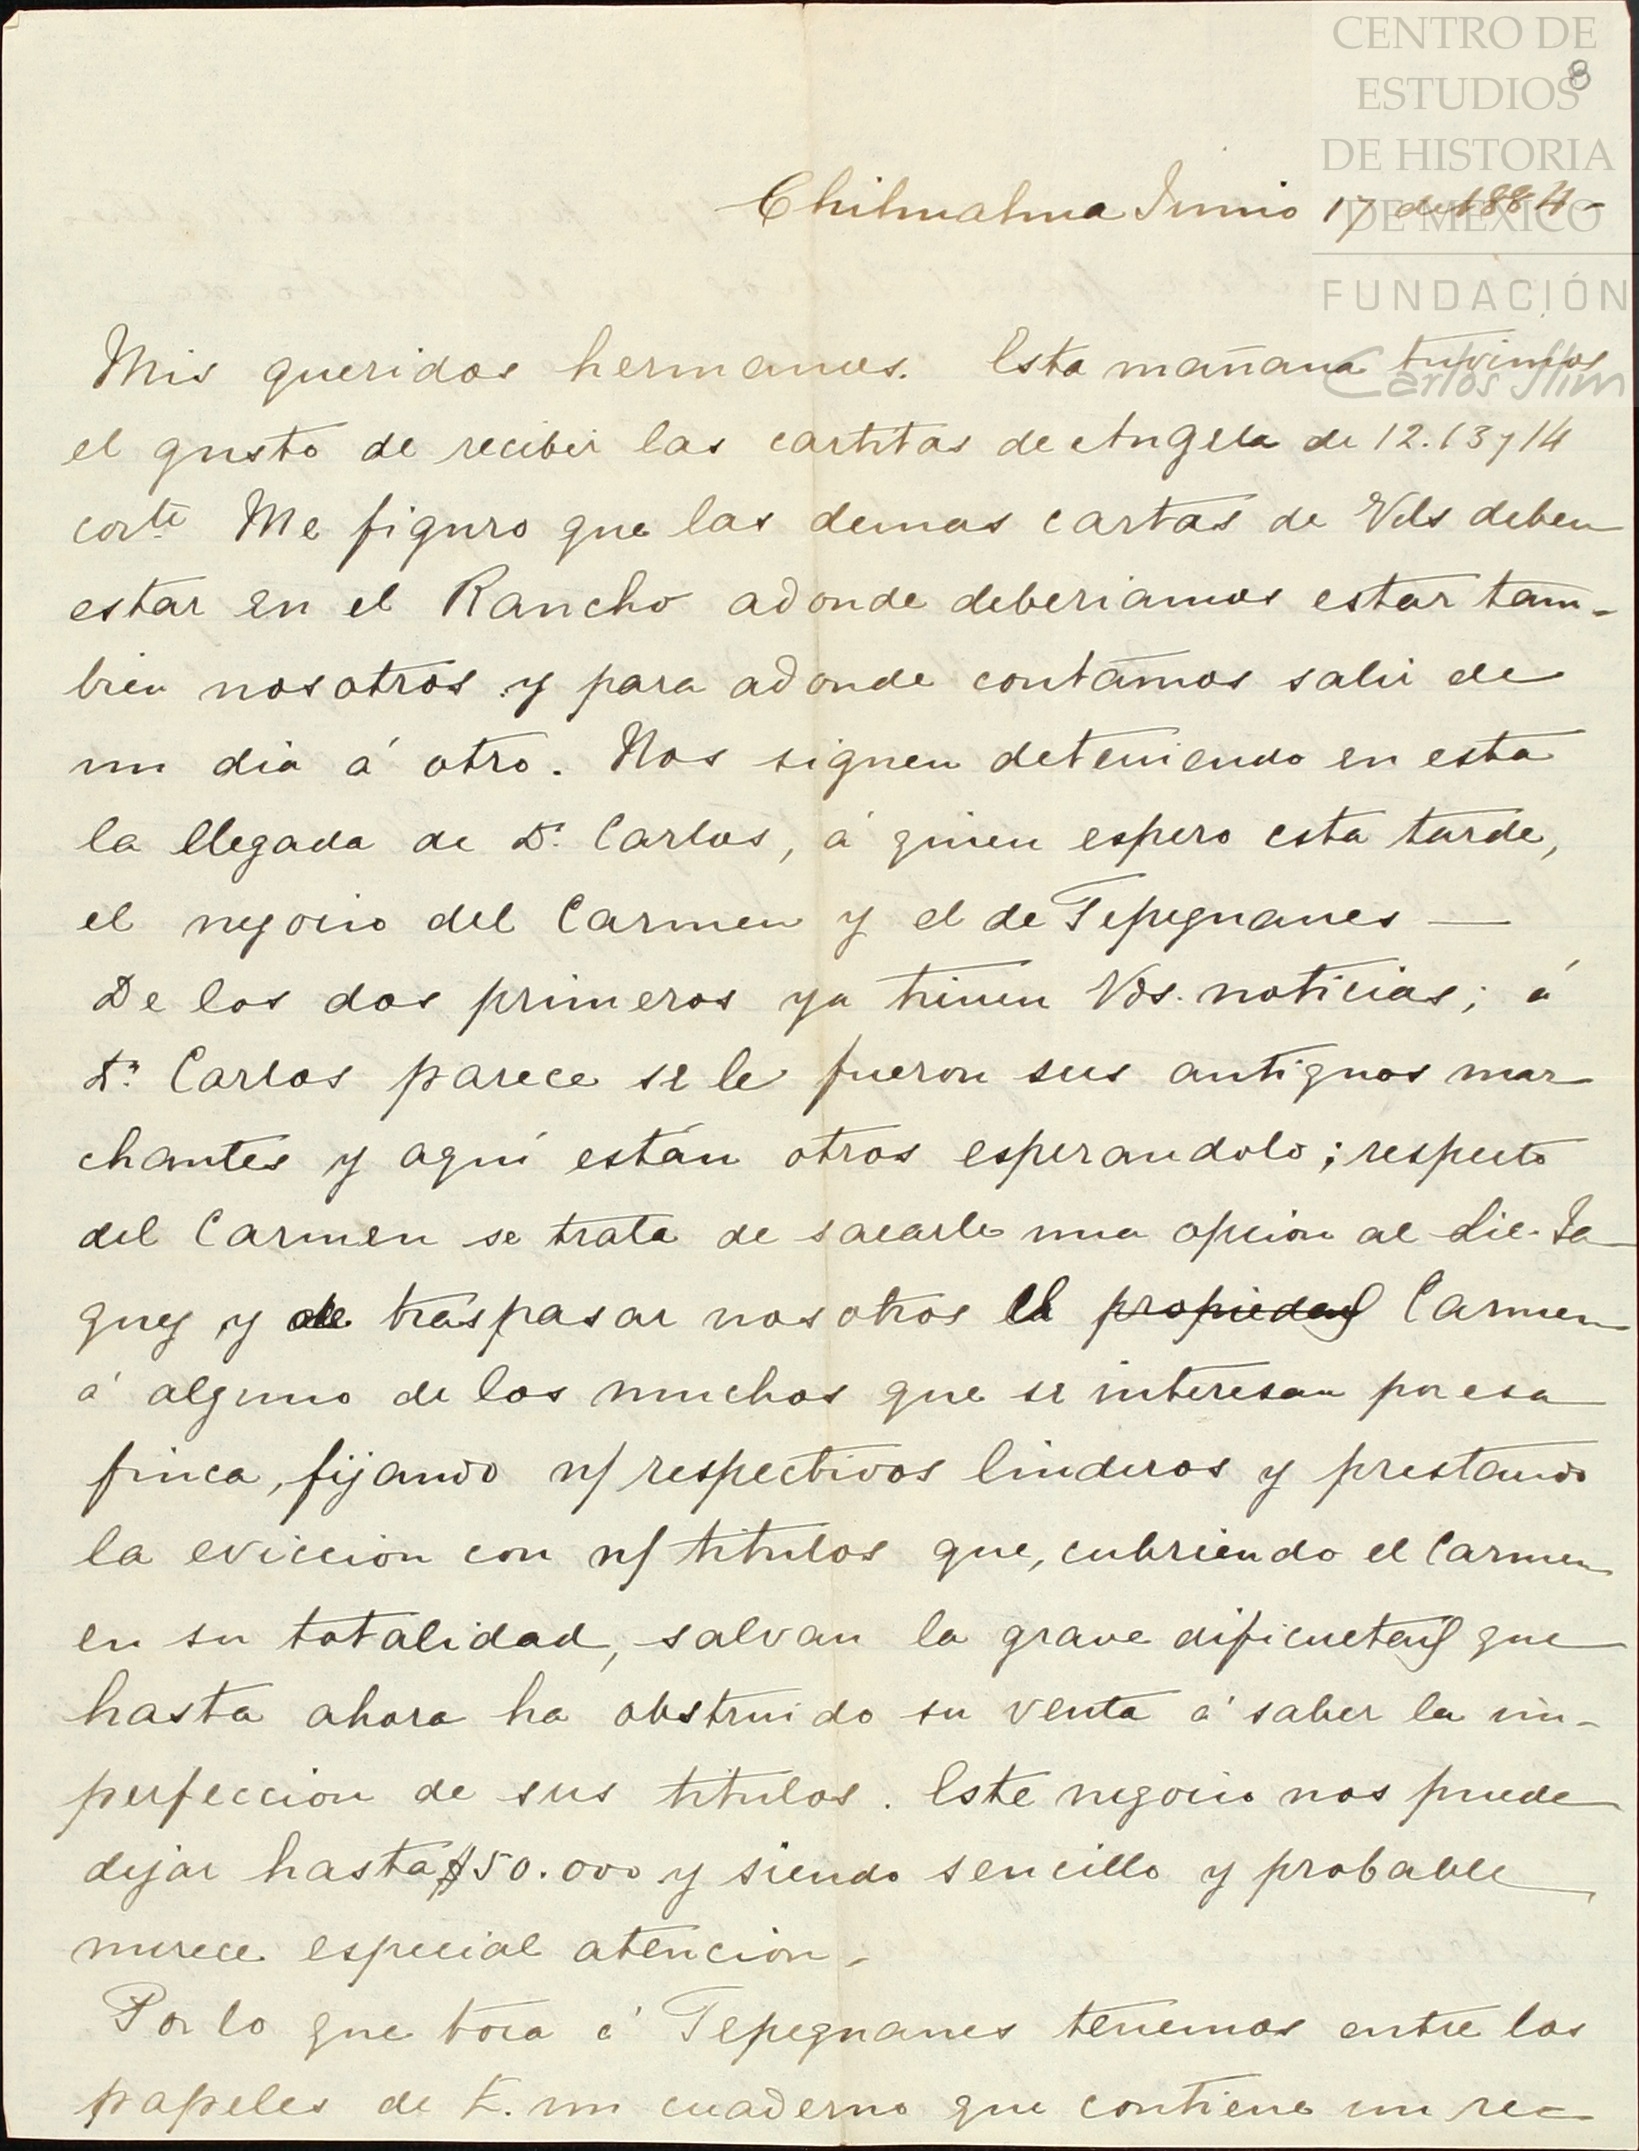 CENTRO DE
ESTUDIOS
8
DE HISTORIA
DE MÉXICO
FUNDACIÓN
Carlos Slim
Chihuahua Junio 17 de 1884-
Mis queridos hermanos. Esta mañana tuvimos
el gusto de recibir las cartitas de Angela de 12.13 y 14
corte Me figuro que las demas cartas de Vds deben
estar en el Rancho adonde deberiamos estar tam-
bien nosotros y para adonde contamos salir de
un dia á otro. Nos siguen deteniendo en esta
la llegada de Dn. Carlos, á quien espero esta tarde,
el negocio del Carmen y el de Tepeguanes —
De los dos primeros ya tienen Vds. noticias; á
Dn. Carlos parece se le fueron sus antiguos mar
chantes y aquí están otros esperandolo; respecto
del Carmen se trata de sacarle una opcion al Lic. Ja
guey y de traspasar nosotros el propiedad Carmen
á alguno de los muchos que se interesan por esa
finca, fijando n/ respectivos linderos y prestando
la eviccion con n/ titulos que, cubriendo el Carmen
en su totalidad, salvan la grave dificultad que
hasta ahora ha obstruido su venta á saber la im-
perfeccion de sus titulos. Este negocio nos puede
dejar hasta $50.000 y siendo sencillo y probable
merece especial atencion-
Por lo que toca á Tepeguanes tenemos entre los
papeles de E. un cuaderno que contiene un rec-